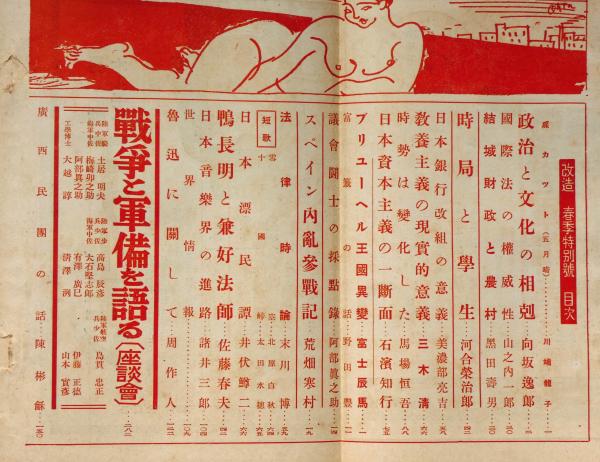 改造 春季特別號 目次
扉カット(五月晴)……川端龍子…(一)
政治と文化の相剋…向坂逸郎…(二)
國際法の權威性…山之内一郎…(三〇)
結城財政と農村…黑田壽男…(三〇)
時局と學生…河合榮治郎…(四二)
日本銀行改組の意義…美濃部亮吉…
敎養主義の現實的意義…三木淸…
時勢は變化した…馬場恒吾…
日本資本主義の一斷面…石濱知行…
ブリユーヘル王國異變…富士辰馬…
富籤の話…野田豊…
議會鬪士の採點錄…阿部眞之助…
スペイン内亂參戰記…荒畑寒村…
法律時論…末川博…
短歌
雲…北原白秋…
十國峠…太田水穗…
日本漂民譚…井伏鱒二…
鴨長明と兼好法師…佐藤春夫…
日本音樂界の進路…諸井三郎…
世界情報…
魯迅に關して…周作人…
戰爭と軍備を語る(座談會)…
陸軍騎兵中佐 土居明夫
陸軍步兵少佐 高島辰彥
陸軍航空兵少佐 島貫忠正
海軍中佐 梅崎卯之助
海軍少佐 大石堅志郎
阿部眞之助
有澤廣巳
伊藤正德
工學博士 大越諄
淸澤洌
山本實彥
廣西民團の話…陳彬龢…